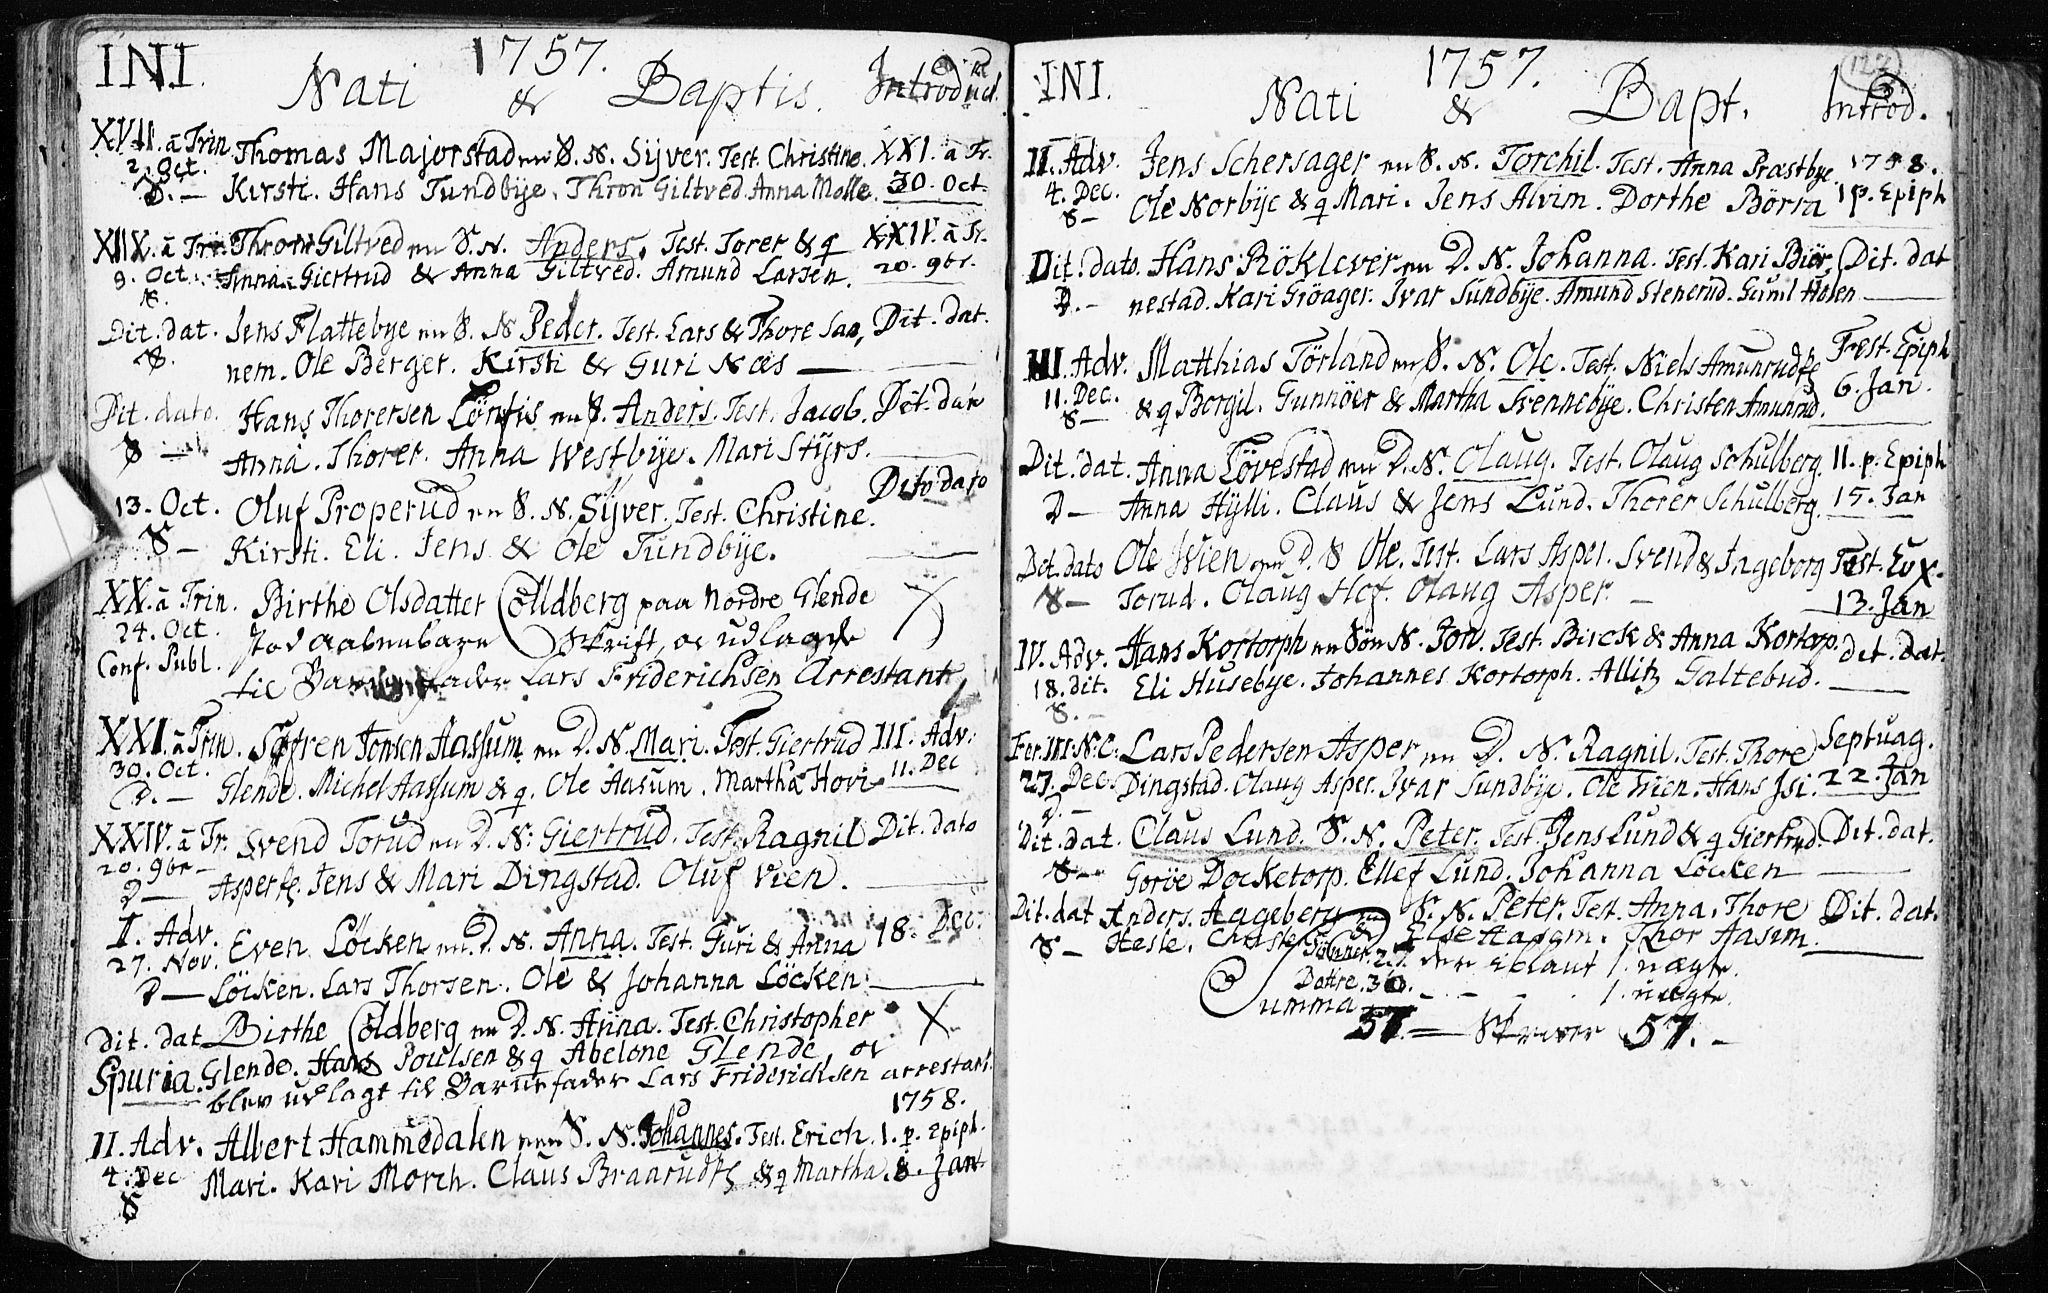 INI. 1757.
Nati & Baptis. Introduct.
XVII. ā Trin Thomas Majorstad en S. N. Sÿver. Test. Christine. XXI. ā Tr.
2. Oct.
S. — Kirsti. Hans Tundbÿe. Thron Giltved Anna Molle. 30. Oct.
XIIX. ā Tr. Thron Giltved en S. N. Anders. Test. Torer & q XXIV. ā Tr.
9. Oct. Anna. Giertrud & Anna Giltved. Amund Larsen. 20. 9br.
S.
Dit. dat. Jens Flattebye en S. N. Peder. Test. Lars & Thore San, Dit. dat.
S. nem. Ole Berger. Kirsti & Guri Næs —
Dit. dato. Hans Thorersen en S. Anders. Test. Jacob. Dit. dat
S — Anna. Thorer. Anna Westbÿe. Mari Stÿrs.
13. Oct. Oluf Properud en S. N. Sÿver. Test. Christine. Dito dato
S — Kirsti. Eli. Jens & Ole Tundbÿe.
XX. ā Trin. Birthe Olsdatter Colldberg paa Nordre Glende X
24. Oct. stod aabenbare Skrift, oc udlagde
Conf. Publ. til Barnefader Lars Friderichsen Arrestant
XXI. ā Trin. Søfren Jonsen Aassum en D. N. Mari. Test. Giertrud III. Adv.
30. Oct.
D. — Glende. Michel Aassum & q. Ole Aasum. Martha Hovi 11. Dec
XXIV. ā Tr. Svend Torud en D. N. Giertrud. Test. Ragnil Dit. dato
20. 9br —
D — Asper. Jens & Mari Dingstad. Oluf Vien.
I. Adv. Even Löcken en D. N. Anna. Test. Guri & Anna 18. Dec.
27. Nov.
D — Löcken. Lars Thorsen. Ole & Johanna Löcken.
Dit. dat Birthe Coldberg en D. N. Anna. Test. Christopher X
Spuria. Glende. Hans Poulsen & q Abelone Glende, oc
blev udlagt til Barnefader Lars Friderichsen arrestant.
1758.
II. Adv. Albert Hammedalen en S. N. Johannes. Test. Erich. 1. p. Epiph.
4. Dec Mari. Kari Morch. Claus Braarud & q Martha. 8. Jan
S
INI. 1757. 122
Nati & Bapt. Introd.
II. Adv. Jens Schersager en S. N. Torchil. Test. Anna Præstbye. 1758.
4. Dec.
S — Ole Norbÿe & q Mari. Jens Alvim. Dorthe Börra 1 p. Epiph
Dit. dato. Hans Röklever en D. N. Johanna. Test. Kari Biör, Dit. dat
D. — nestad. Kari Gröager. Ivar Sundbÿe. Amund Stenerud. Gunil Holen
III. Adv. Matthias Törland en S. N. Ole. Test. Niels Amunrud Fest. Epiph
11. Dec. 6. Jan.
S — & q Borgil. Gunnöer & Martha Svennebÿe. Christen Amunrud.
Dit. dat. Anna Lövestad en D. N. Olaug. Test. Olaug Schulberg. 11. p. Epiph
D — Anna Hÿlli. Claus & Jens Lund. Thorer Schulberg. 15. Jan
Dit. dato Ole Wien en D. S Ole. Test. Lars Asper. Svend & Ingeborg Fest. Ev X.
S — Torud. Olaug Hof. Olaug Asper. — 13. Jan
IV. Adv. Hans Kortorph en Sön N. Jon. Test. Birck & Anna Kortorp. dit. dat.
18. dit. Eli Husebye. Johannes Kortorph. Allitz Galtebud.
S. —
Fer. III N. C. Lars Pedersen Asper en D. N. Ragnil. Test. Thore Septuag.
27. Dec. Dingstad. Olaug Asper. Ivar Sundbÿe. Ole Wien. Hans Isi. 22. Jan
D. —
Dit. dat. Claus Lund. S. N. Peter. Test. Jens Lund & q Giertrud. Dit. dat.
S — Goröe Docketorp. Ellef Lund. Johanna Löcken
Dit. dat Anders. Aggeberg en S. N. Peter. Test. Anna. Thore Dit. dat.
S — Hesle. Else Aasem. Thor Aasum.
Sönner. 27. der iblant 1. uægte.
Dottre. 30. — — — 1. uægte.
Summa 57. — Skriver 57. —